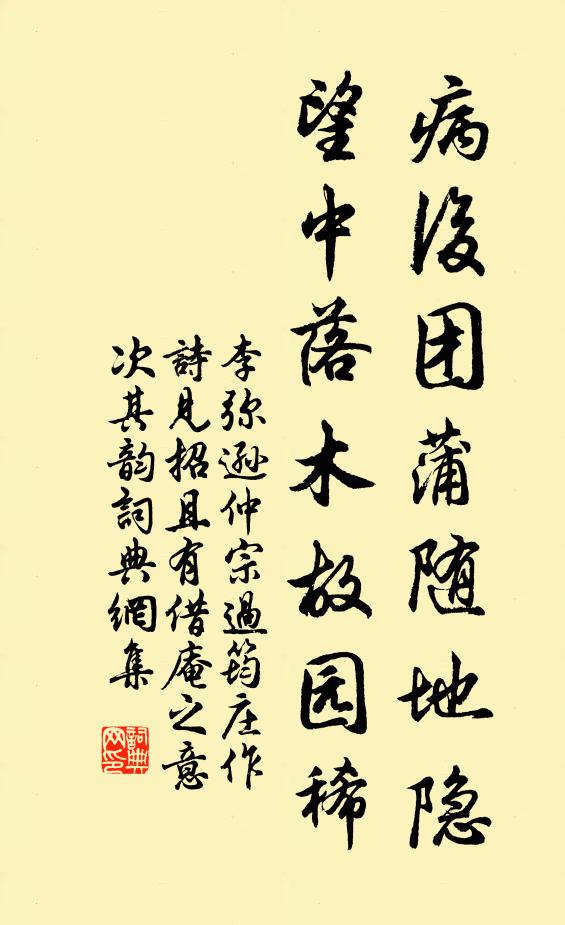 病後团蒲随地隐
望中落木故园稀
李弥遜仲宗過筠庄作
詩見招且有借庵之意
次其韵詞典網集
詞典网印